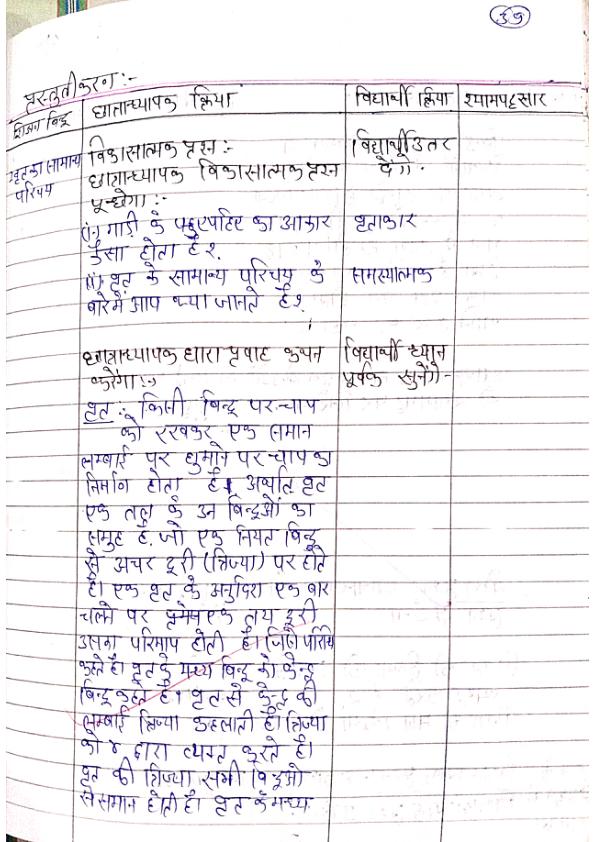 39
प्रस्तुतीकरण :-
शिक्षण बिन्दु छात्राध्यापक क्रिया विद्यार्थी क्रिया श्यामपट्टसार
वृत का सामान्य परिचय
विकासात्मक प्रश्न :- विद्यार्थी उतर
छात्राध्यापक विकासात्मक प्रश्न देंगे.
पून्छेगा :-
(i) गाडी के पहिए का आकार वृताकार
कैसा होता है?
(ii) वृत के सामान्य परिचय के समस्यात्मक
बारे में आप क्या जानते है?
छात्राध्यापक द्वारा प्रवाह कथन विद्यार्थी ध्यान
करेगा :- पूर्वक सुनेंगे -
वृत :- किसी बिन्दु पर चाप
को रखकर एक समान
लम्बाई पर घुमाने पर चाप का
निर्माण होता है। अर्थात वृत
एक तल के उन बिन्दुओं का
समुह है. जो एक नियत बिन्दु
से अचर दूरी (त्रिज्या) पर होते
है। एक वृत के अनुदिश एक बार
चलने पर एक तय दूरी
उसका परिमाप होती है। जिसे परिधि
कहते है। वृत के मध्य बिन्दु को केन्द्र
बिन्दु कहते है। वृत से केन्द्र की
लम्बाई त्रिज्या कहलाती है। त्रिज्या
को r द्वारा व्यक्त करते है।
वृत की त्रिज्या सभी बिन्दुओ
से समान होती है। वृत के मध्य